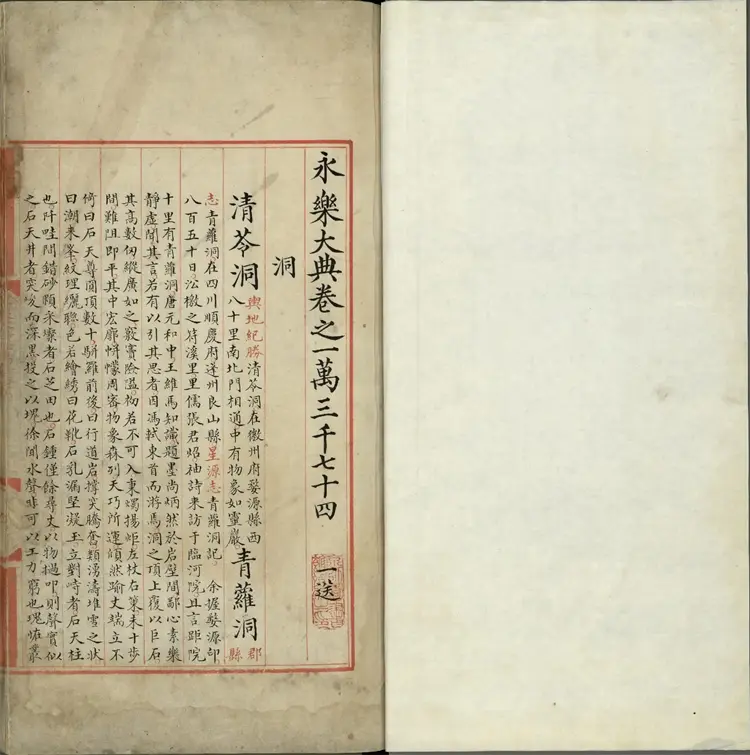 永樂大典卷之一萬三千七十四 一送
洞
清苓洞
輿地紀勝清苓洞在徽州府婺源縣西
八十里南北門相通中有物象如靈巖
青蘿洞
郡
縣
志青蘿洞在四川順慶府蓬州良山縣星源志青蘿洞記 余握婺源印
八百五十日訟檄之符溪里里儒張君昭袖詩来訪于臨河院且言距院
十里有青蘿洞唐元和中王維馬知識題墨尚炳然於岩壁間鄙心素樂
靜虛聞其言若有以引其思者因馮軾東首而游焉洞之頂上覆以巨石
其高數仞縱廣如之竅竇險若不可入秉燭揚炬左杖右策未十步
間難阻即平其中宏廓帡幪周審物象森列天巧所運傾然踰丈端立不
倚曰石天尊圓頂數十駢羅前後曰行道岩撐突騰奮類湧濤堆雪之狀
曰潮来峯紋理纚聯色若繪綉曰花靴石乳漏堅凝玉立對峙者石天柱
也阡畦間錯砂顆米粲者石芝田也石鍾僅餘尋丈以物撾叩則聲實似
之石天井者突而深黑投之以塊徐聞水聲非可以工力窮也瑰怪叢